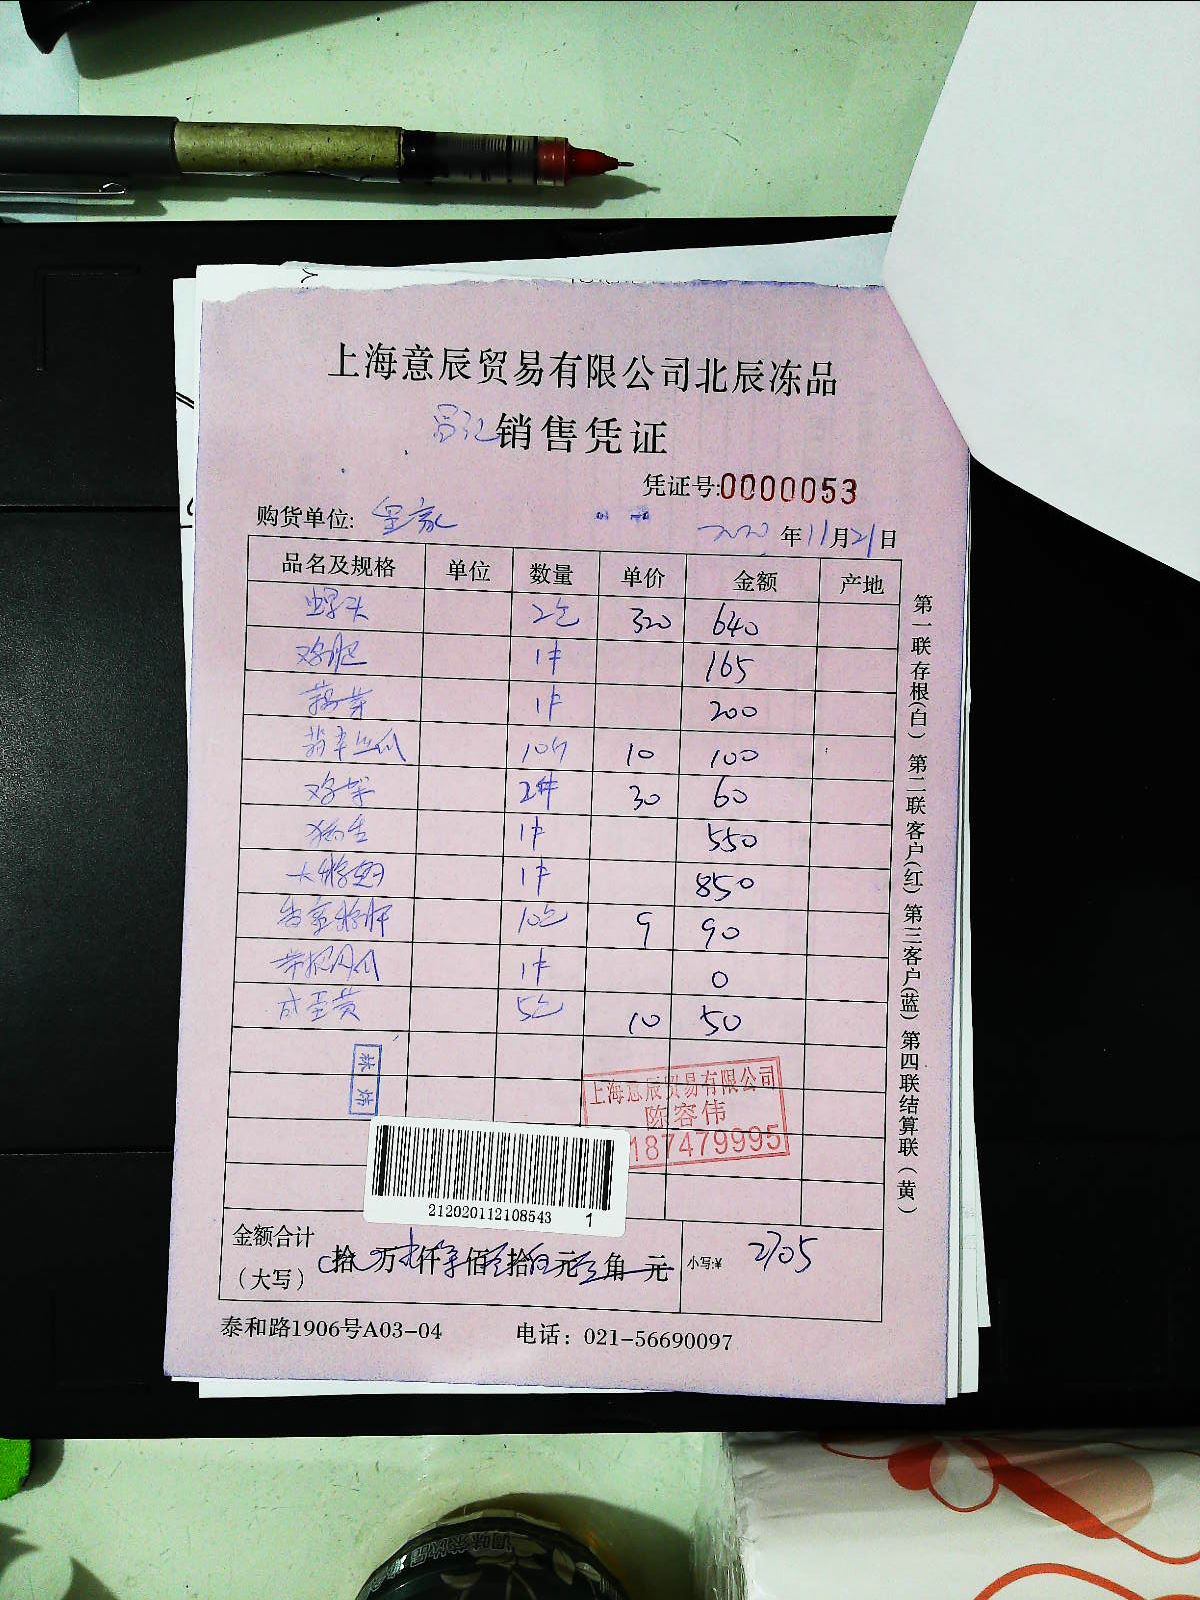 上海意辰贸易有限公司北辰冻品
销售凭证
凭证号:0000053
购货单位: 2020年11月21日
品名及规格 单位 数量 单价 金额 产地
螺头 2包 320 640
鸡肥 1件 165
1件 200
翡翠丝瓜 10斤 10 100
鸡架 2件 30 60
1件 550
850
10包 9 90
1件 0
咸蛋黄 5包 10 50
上海意辰贸易有限公司
陈容伟
187479995
212020112108543 1
金额合计
(大写) 拾 万 仟 佰 拾 元 角 元 小写:¥ 2705
泰和路1906号A03-04 电话: 021-56690097
第一联存根(白) 第二联客户(红) 第三客户(蓝) 第四联结算联(黄)